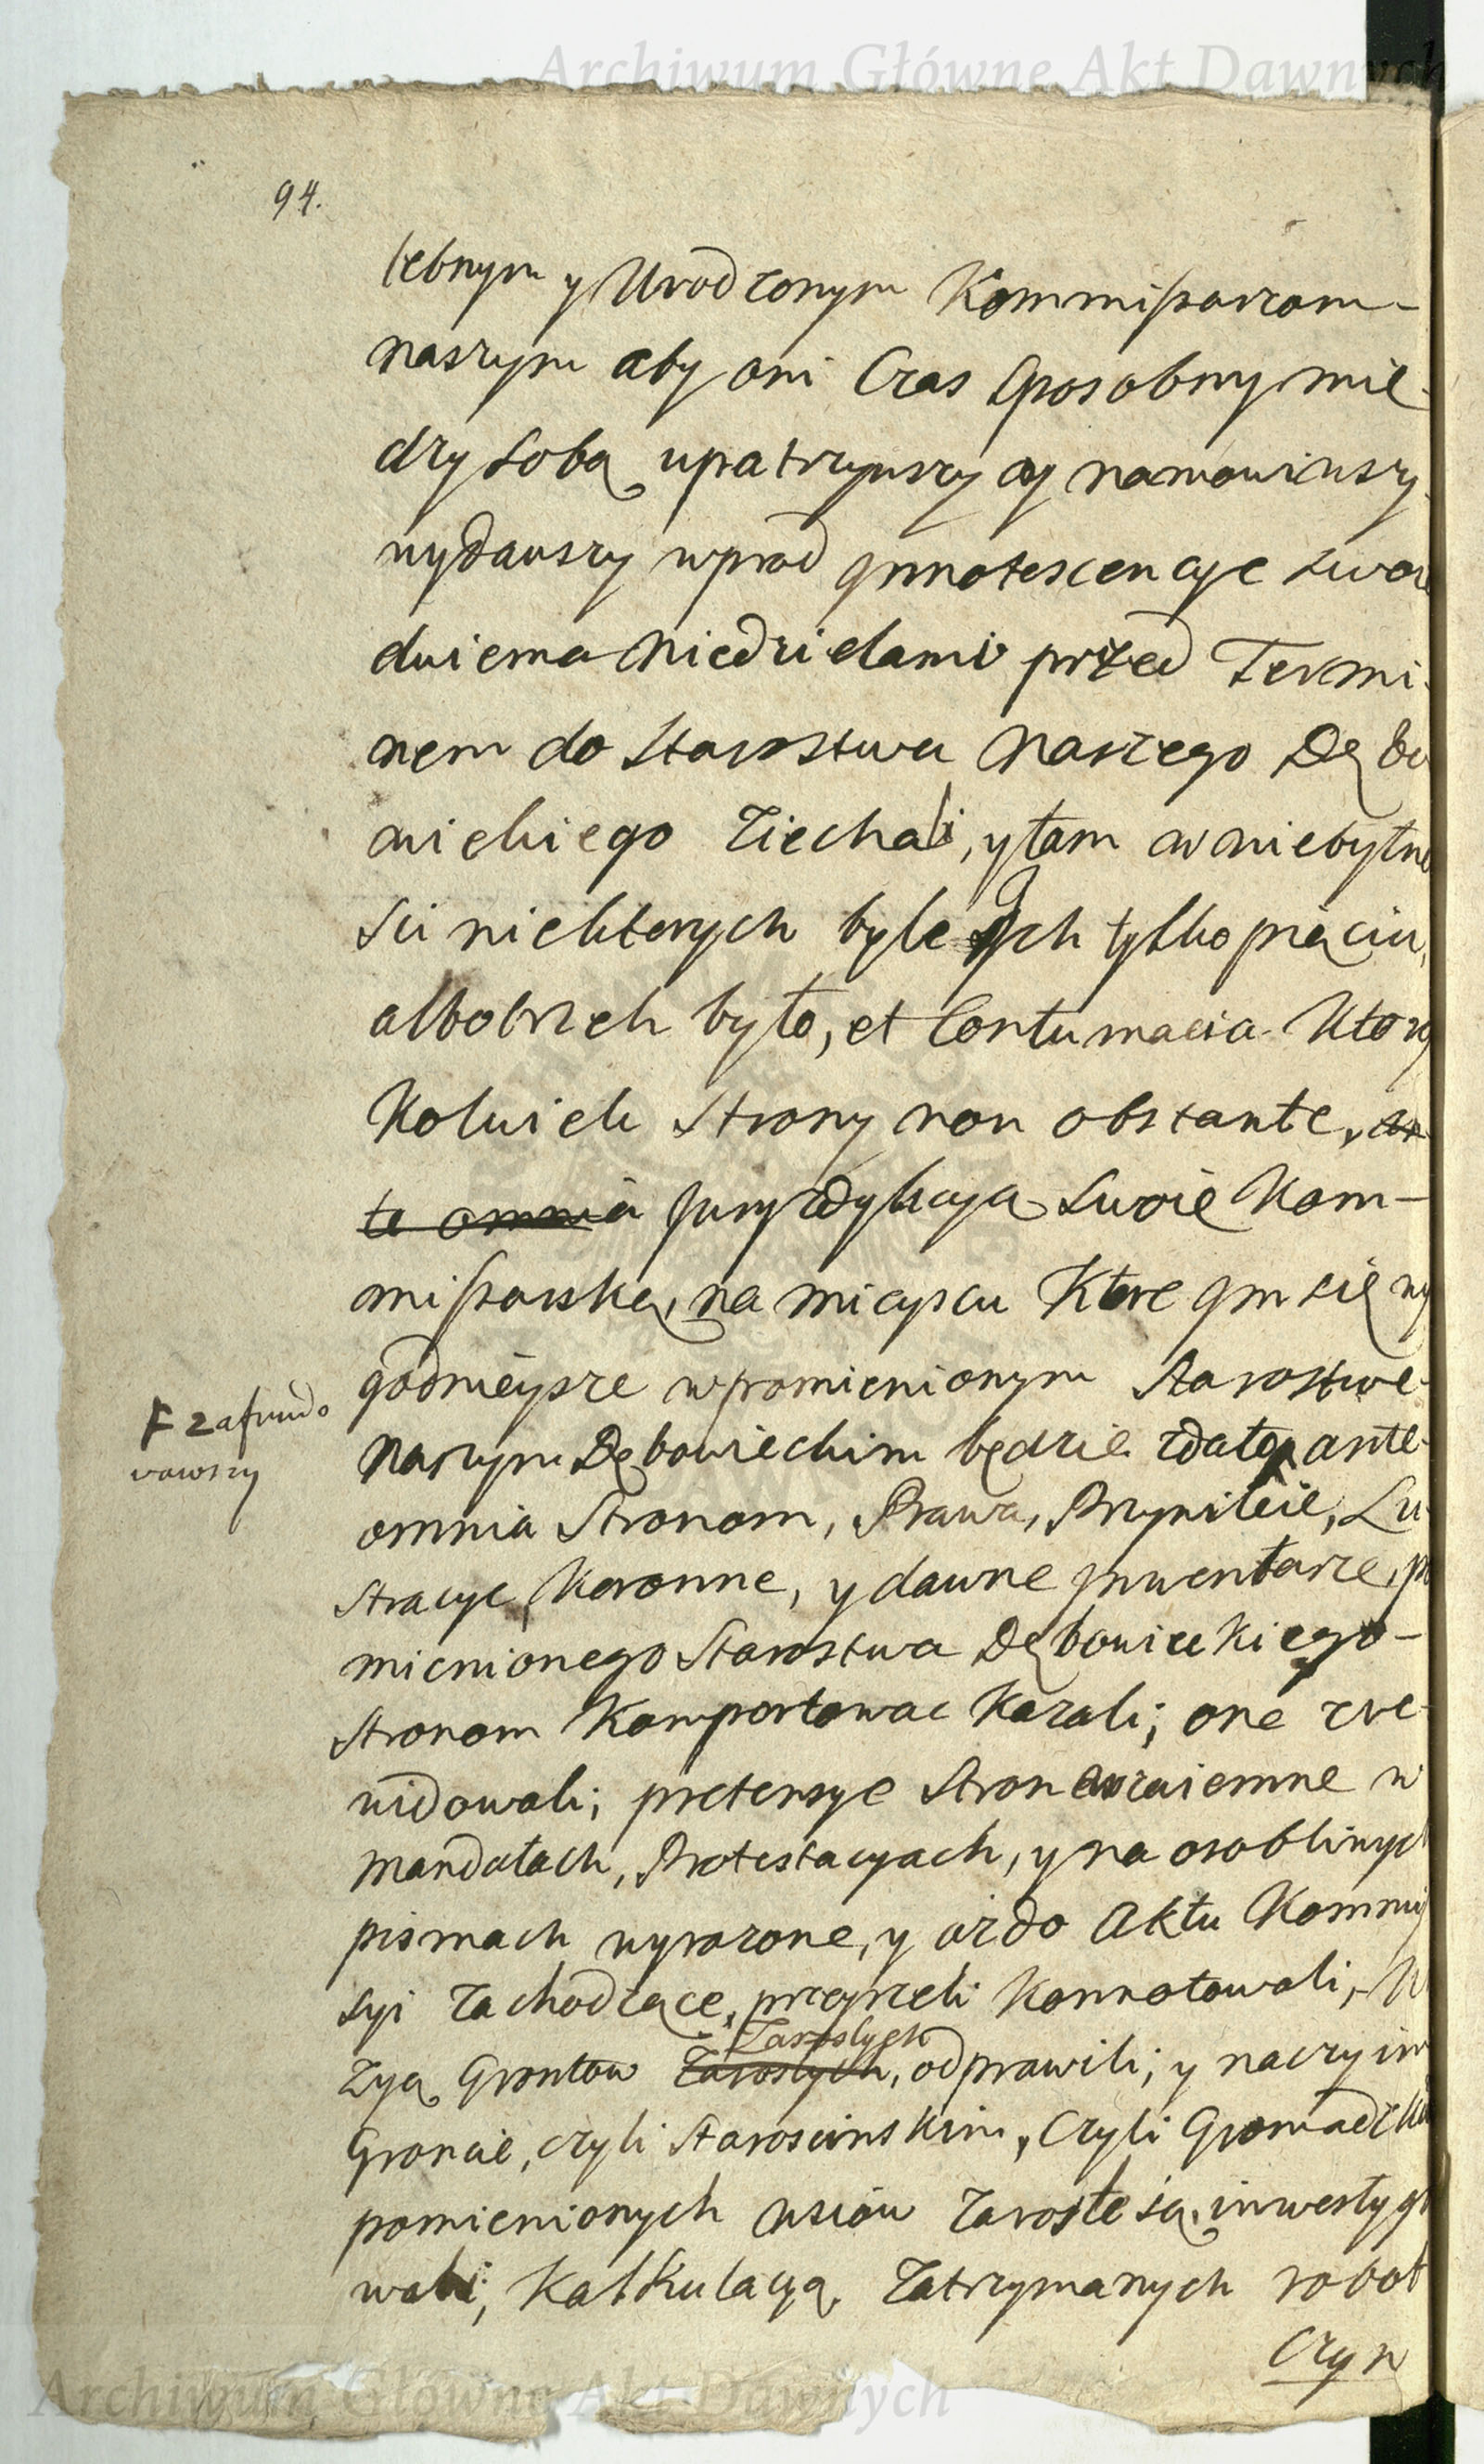 Archiwum Główne Akt Dawnych
94.
lebnym y Urodzonym Kommissarzom
naszym aby oni Czas sposobny mie
dzy sobą upatrzywszy y namowiwszy
wydawszy wprzod Jnnotescencye swoie
dwiema Niedzielami przed Termi
nem do Starostwa Naszego Dębo
wieckiego Ziechali, y tam w niebytno
sci niektorych byle Jch tylko pięciu,
albo trzech było, et Contumacia Ktorey
Kolwiek Strony non obstante, an
te omnia Juryzdykcyą Swoię Kom-
missarską, na mieyscu Ktore Jm się wy
godnieysze w pomienionym Starostwie
F zafundo
wawszy
Naszym Dębowieckim będzie zdało, ante
omnia Stronom, Prawa, Przywileie, Lu
stracye, Koronne, y dawne Jnwentarze, po
mienionego Starostwa Dębowieckiego-
Stronom Komportować Kazali; one zre
widowali; pretensye Stron wzaiemne w
Mandatach, Protestacyach, y na osobliwych
pismach wyrazone, y aż do Aktu Kommis
syi Zachodzące, przeyrzeli Konnotowali, W
Zyą Grontow Zarosłych Zarosłych, odprawili; y na czyim
Groncie, czyli Starościnskim, Czyli Gromadzkim
pomienionych wsiów Zarosłe są, inwestygo
wali; Kalkulacyą Zatrzymanych robot
Czyn
Archiwum Główne Akt Dawnych